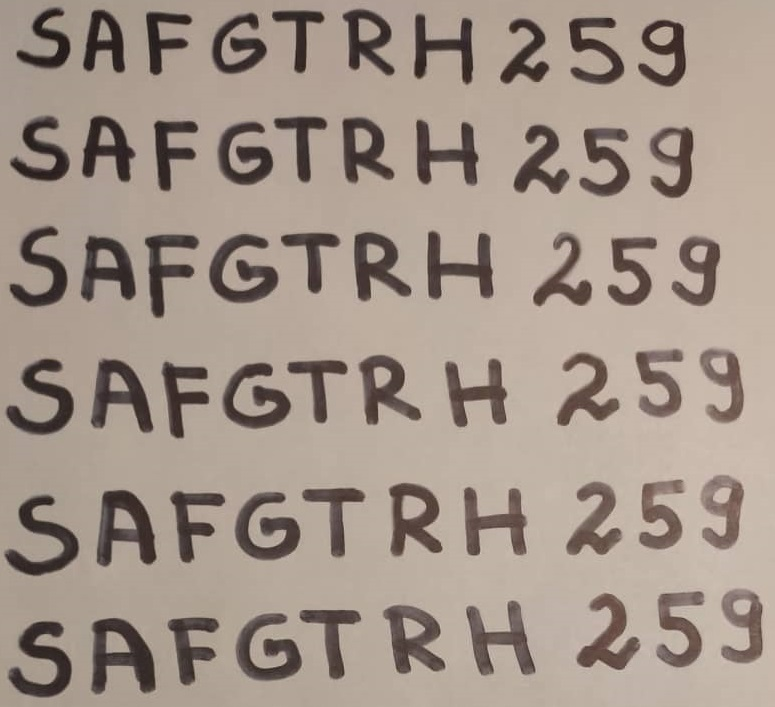 SAFGTRH 259
SAFGTRH 259
SAFGTRH 259
SAFGTRH 259
SAFGTRH 259
SAFGTRH 259